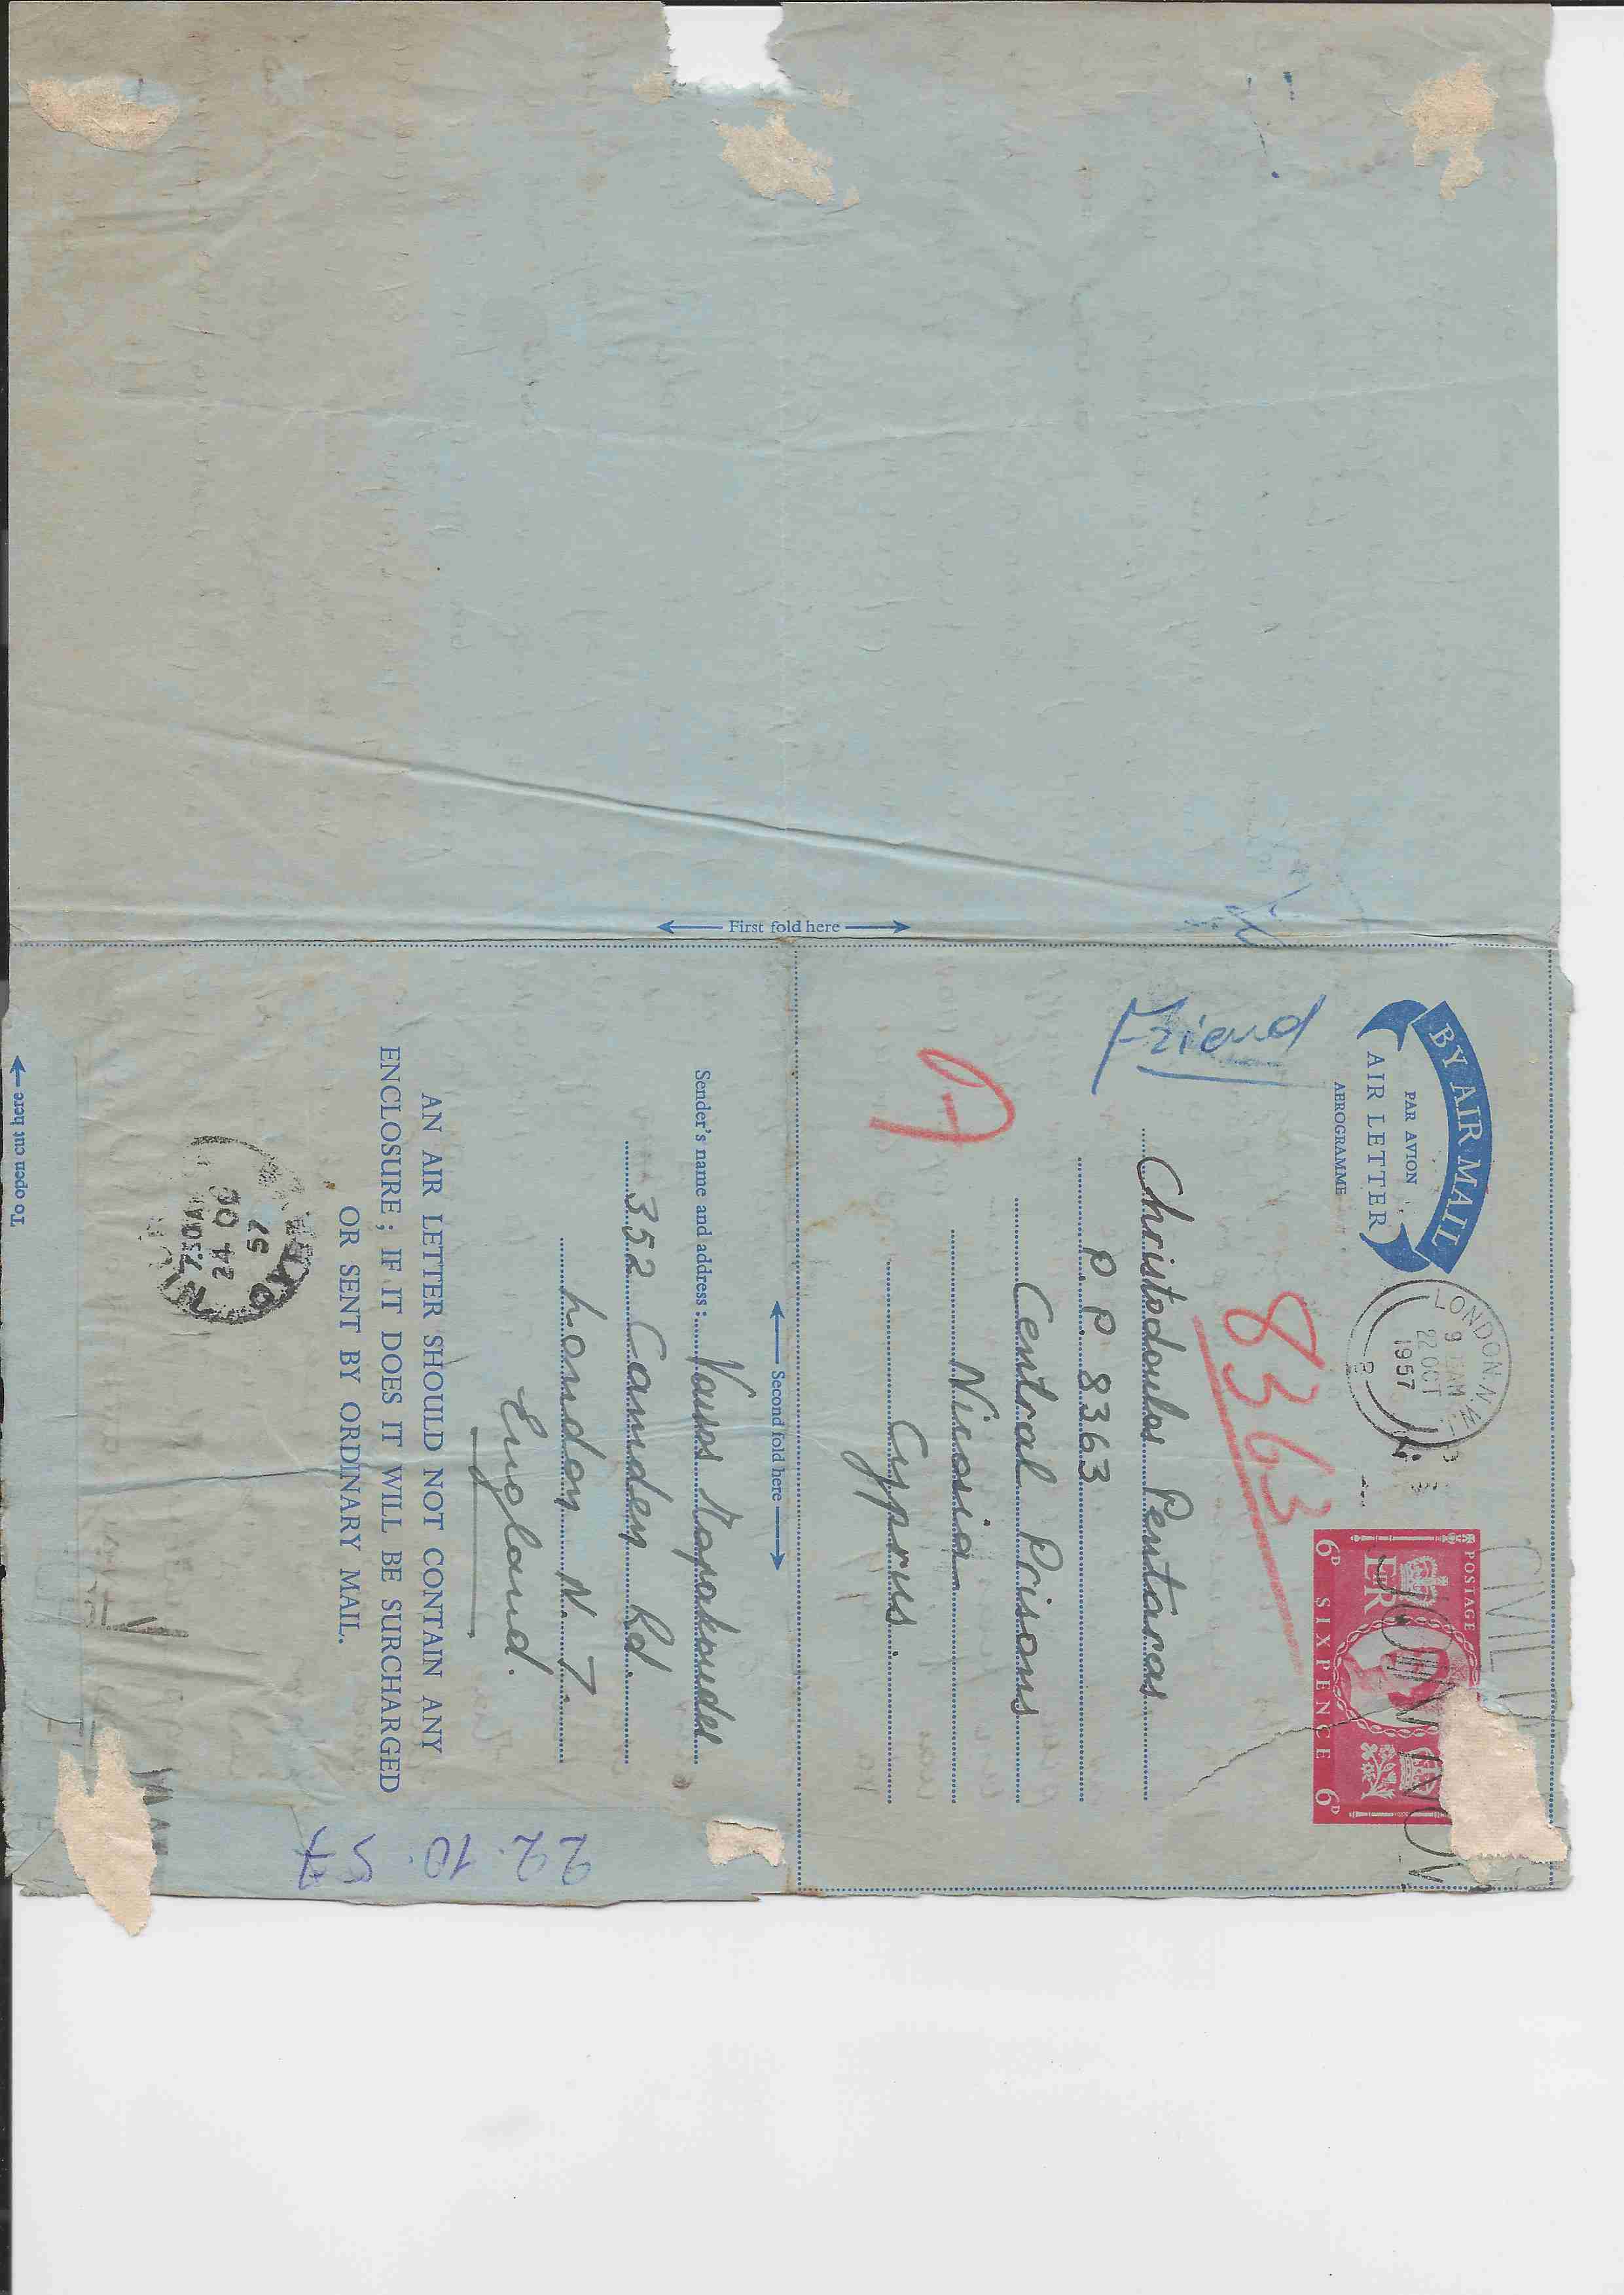 First fold here
BY AIR MAIL
PAR AVION
AIR LETTER
AEROGRAMME
LONDON. N.W.
9 AM
22 OCT
1957
POSTAGE
ER
6D SIXPENCE 6D
CIVIL
Friend
8363
Christodoulos Pentaras
P P 8363
Central Prisons
Nicosia
Cyprus.
Second fold here
Sender's name and address:
352 Camden Rd.
London N. 7.
England.
AN AIR LETTER SHOULD NOT CONTAIN ANY
ENCLOSURE; IF IT DOES IT WILL BE SURCHARGED
OR SENT BY ORDINARY MAIL.
57
24 OC
7.30AM
22.10.57
To open cut here